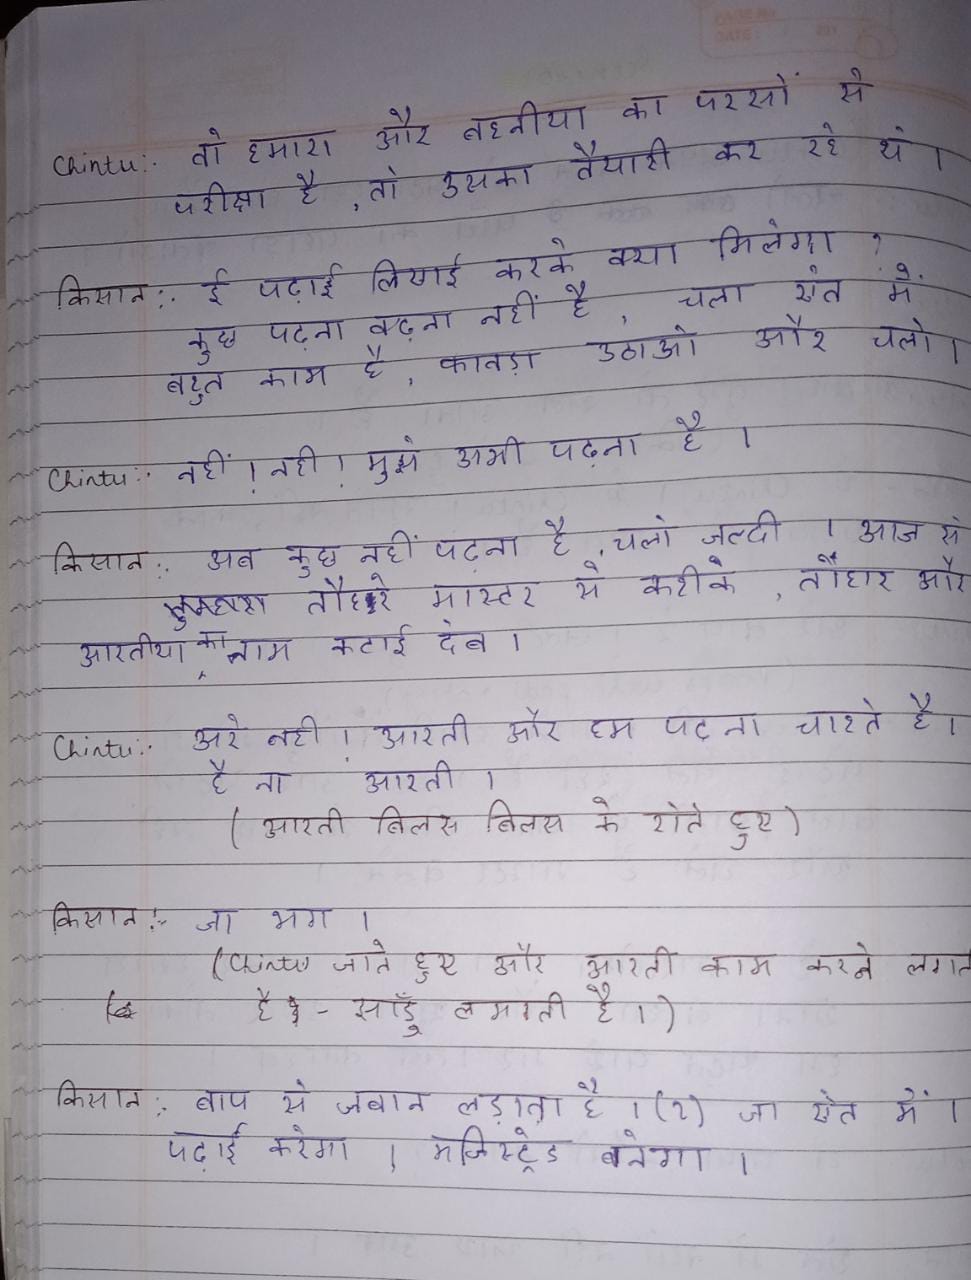 Chintu:. तो हमारा और बहनीया का परसों से
परीक्षा है, तो उसका तैयारी कर रहे थे।
किसान:. ई पढ़ाई लिखाई करके क्या मिलेगा ?
कुछ पढ़ना वढ़ना नहीं है, चला खेत में
बहुत काम है, फावड़ा उठाओ और चलो।
Chintu:. नहीं! नही! मुझे अभी पढ़ना है।
किसान:. अब कुछ नहीं पढ़ना है, चलो जल्दी। आज से
तौहरे मास्टर से कहीके, तौहार और
आरतीया का नाम कटाई देब।
Chintu:. अरे नही। आरती और हम पढ़ना चाहते है।
है ना आरती।
(आरती बिलस बिलस के रोते हुए)
किसान:- जा भग।
(Chintu जाते हुए और आरती काम करने लगत
है - साड़ूँ लगाती है।)
किसान:. बाप से जबान लड़ाता है। (२) जा खेत में।
पढ़ाई करेगा। मजिस्ट्रेड बनेगा।